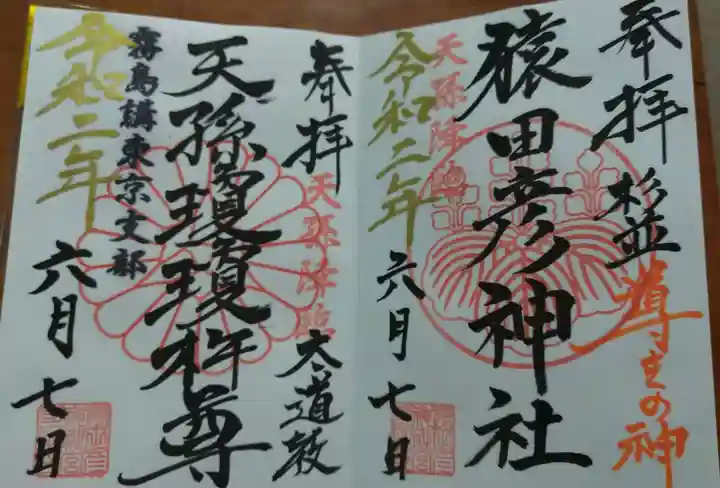 奉拝 杉並
導きの神
猿田彦神社
天孫降臨
令和二年
六月七日
奉拝
天孫降臨
大道教
天孫瓊瓊杵尊
霧島講東京支部
令和二年
六月七日